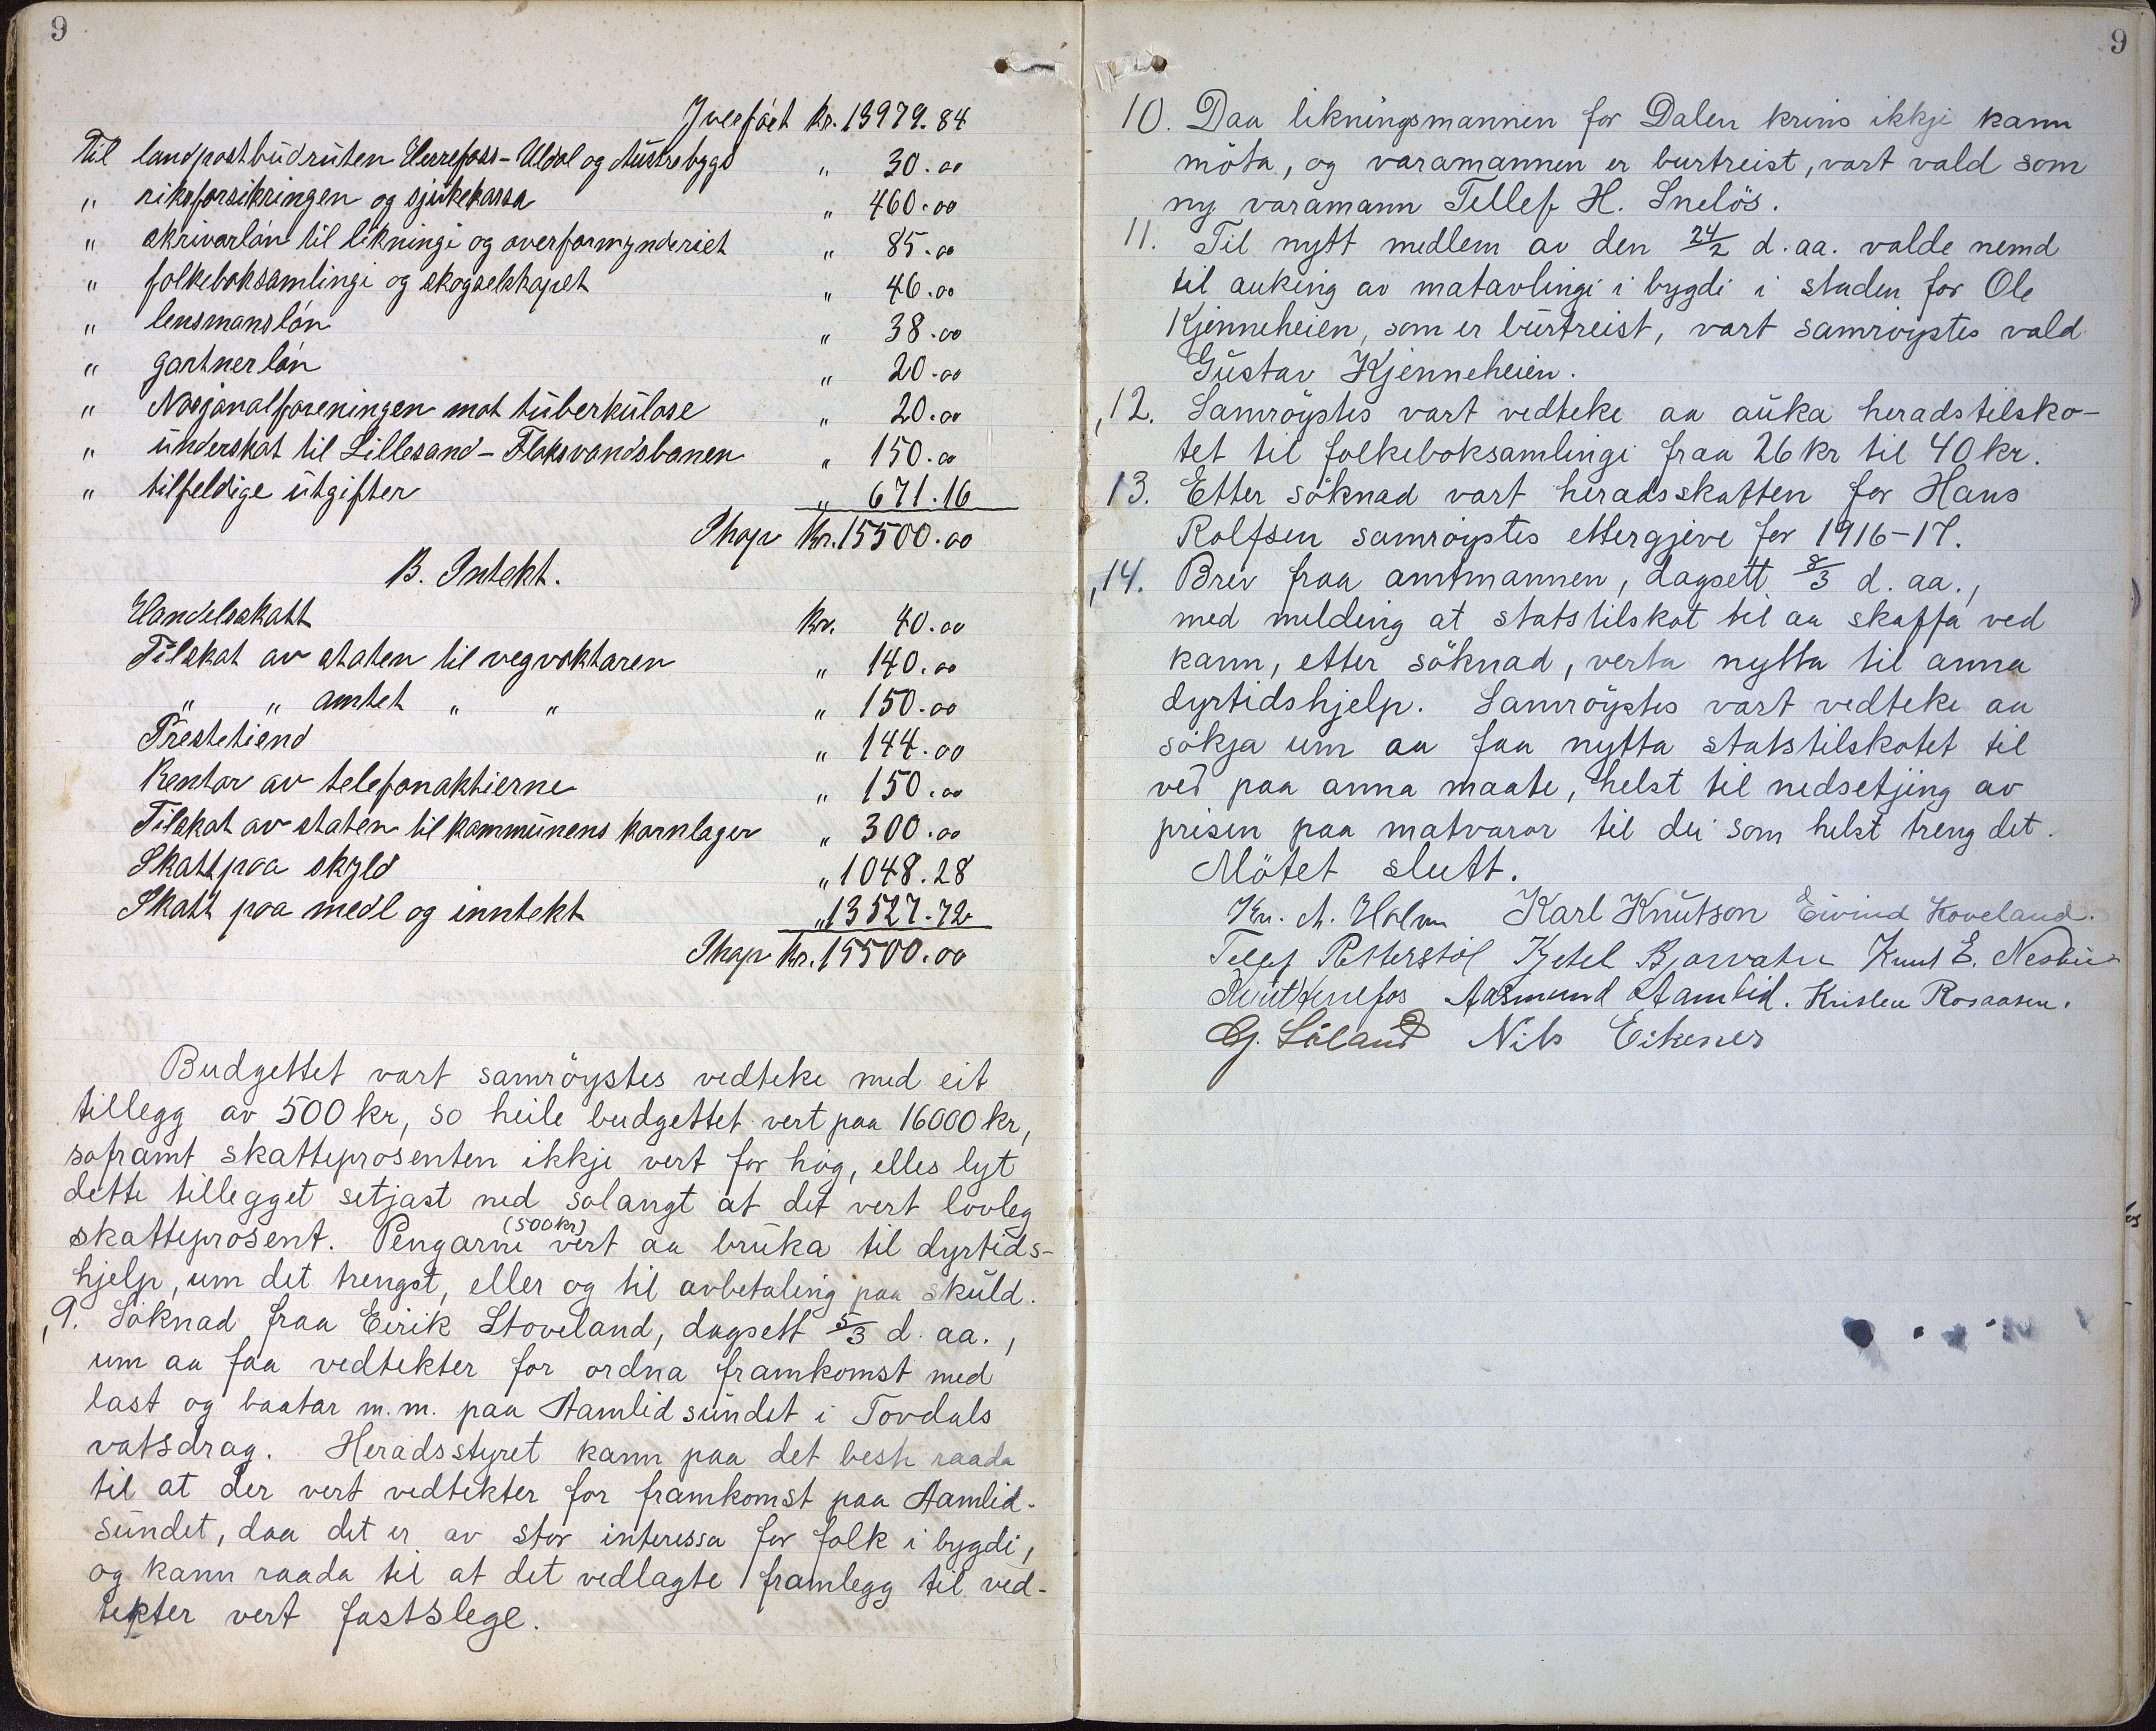 9
Yverfört Kr. 13979.84
Til landpostbudruten Herrefoss - Uldal og Austrebygd " 30.00
" riksforsikringen og sjukekassa " 460.00
" skrivarlön til likningi og overformynderiet " 85.00
" folkeboksamlingi og skogselskapet " 46.00
" lensmanslön " 38.00
" gartnerlön " 20.00
" Nasjonalforeningen mot tuberkulose " 20.00
" underskot til Lillesand - Flaksvandsbanen " 150.00
" tilfeldige utgifter " 671.16
Ihop Kr. 15500.00
B. Intekt.
Handelsskatt Kr. 40.00
Tilskot av staten til vegvoktaren " 140.00
" " amtet " " " 150.00
Prestetiend " 144.00
Rentor av telefonaktierne " 150.00
Tilskot av staten til kommunens kornlager " 300.00
Skatt paa skyld " 1048.28
Skatt paa medl og inntekt " 13527.72
Ihop Kr. 15500.00
Budgettet vart samröystes vedteke med eit
tillegg av 500 kr, so heile budgettet vert paa 16000 kr,
soframt skatteprosenten ikkje vert for høg, elles lyt
dette tillegget setjast ned solangt at det vert lovleg
skatteprosent. Pengarne (500 kr) vert aa bruka til dyrtids-
hjelp, um det trengst, eller og til avbetaling paa skuld.
9. Söknad fraa Eirik Stoveland, dagsett 5/3 d. aa.,
um aa faa vedtekter for ordna framkomst med
last og baatar m.m. paa Aamlidsundet i Tovdals
vatsdrag. Heradsstyret kann paa det beste raada
til at der vert vedtekter for framkomst paa Aamlid-
sundet, daa det er av stor interessa for folk i bygdi,
og kann raada til at det vedlagte framlegg til ved-
tekter vert fastslege.
9
10. Daa likningsmannen for Dalen krins ikkje kann
möta, og varamannen er burtreist, vart vald som
ny varamann Tellef H. Snelös.
11. Til nytt medlem av den 24/2 d. aa. valde nemd
til auking av matavlingi i bygdi i staden for Ole
Kjenneheien, som er burtreist, vart samröystes vald
Gustav Kjenneheien.
12. Samröystes vart vedteke aa auka heradstilsko-
tet til folkeboksamlingi fraa 26 kr til 40 kr.
13. Etter söknad vart heradsskatten for Hans
Rolfsen samröystes ettergjeve for 1916-17.
14. Brev fraa amtmannen, dagsett 8/3 d. aa.,
med melding at statstilskot til aa skaffa ved
kann, etter söknad, verta nytta til anna
dyrtidshjelp. Samröystes vart vedteke aa
sökja um aa faa nytta statstilskotet til
ved paa anna maate, helst til nedsetjing av
prisen paa matvaror til dei som helst treng det.
Mötet slutt.
Kn. A. Holm Karl Knutson Eivind Hoveland.
Tellef Retterstöl Kjetel Bjorvatn Knut E. Nesbu
Knut Herefos Aasmund Aamlid. Kristen Rosaasen.
G. Söland Nils Eikenes